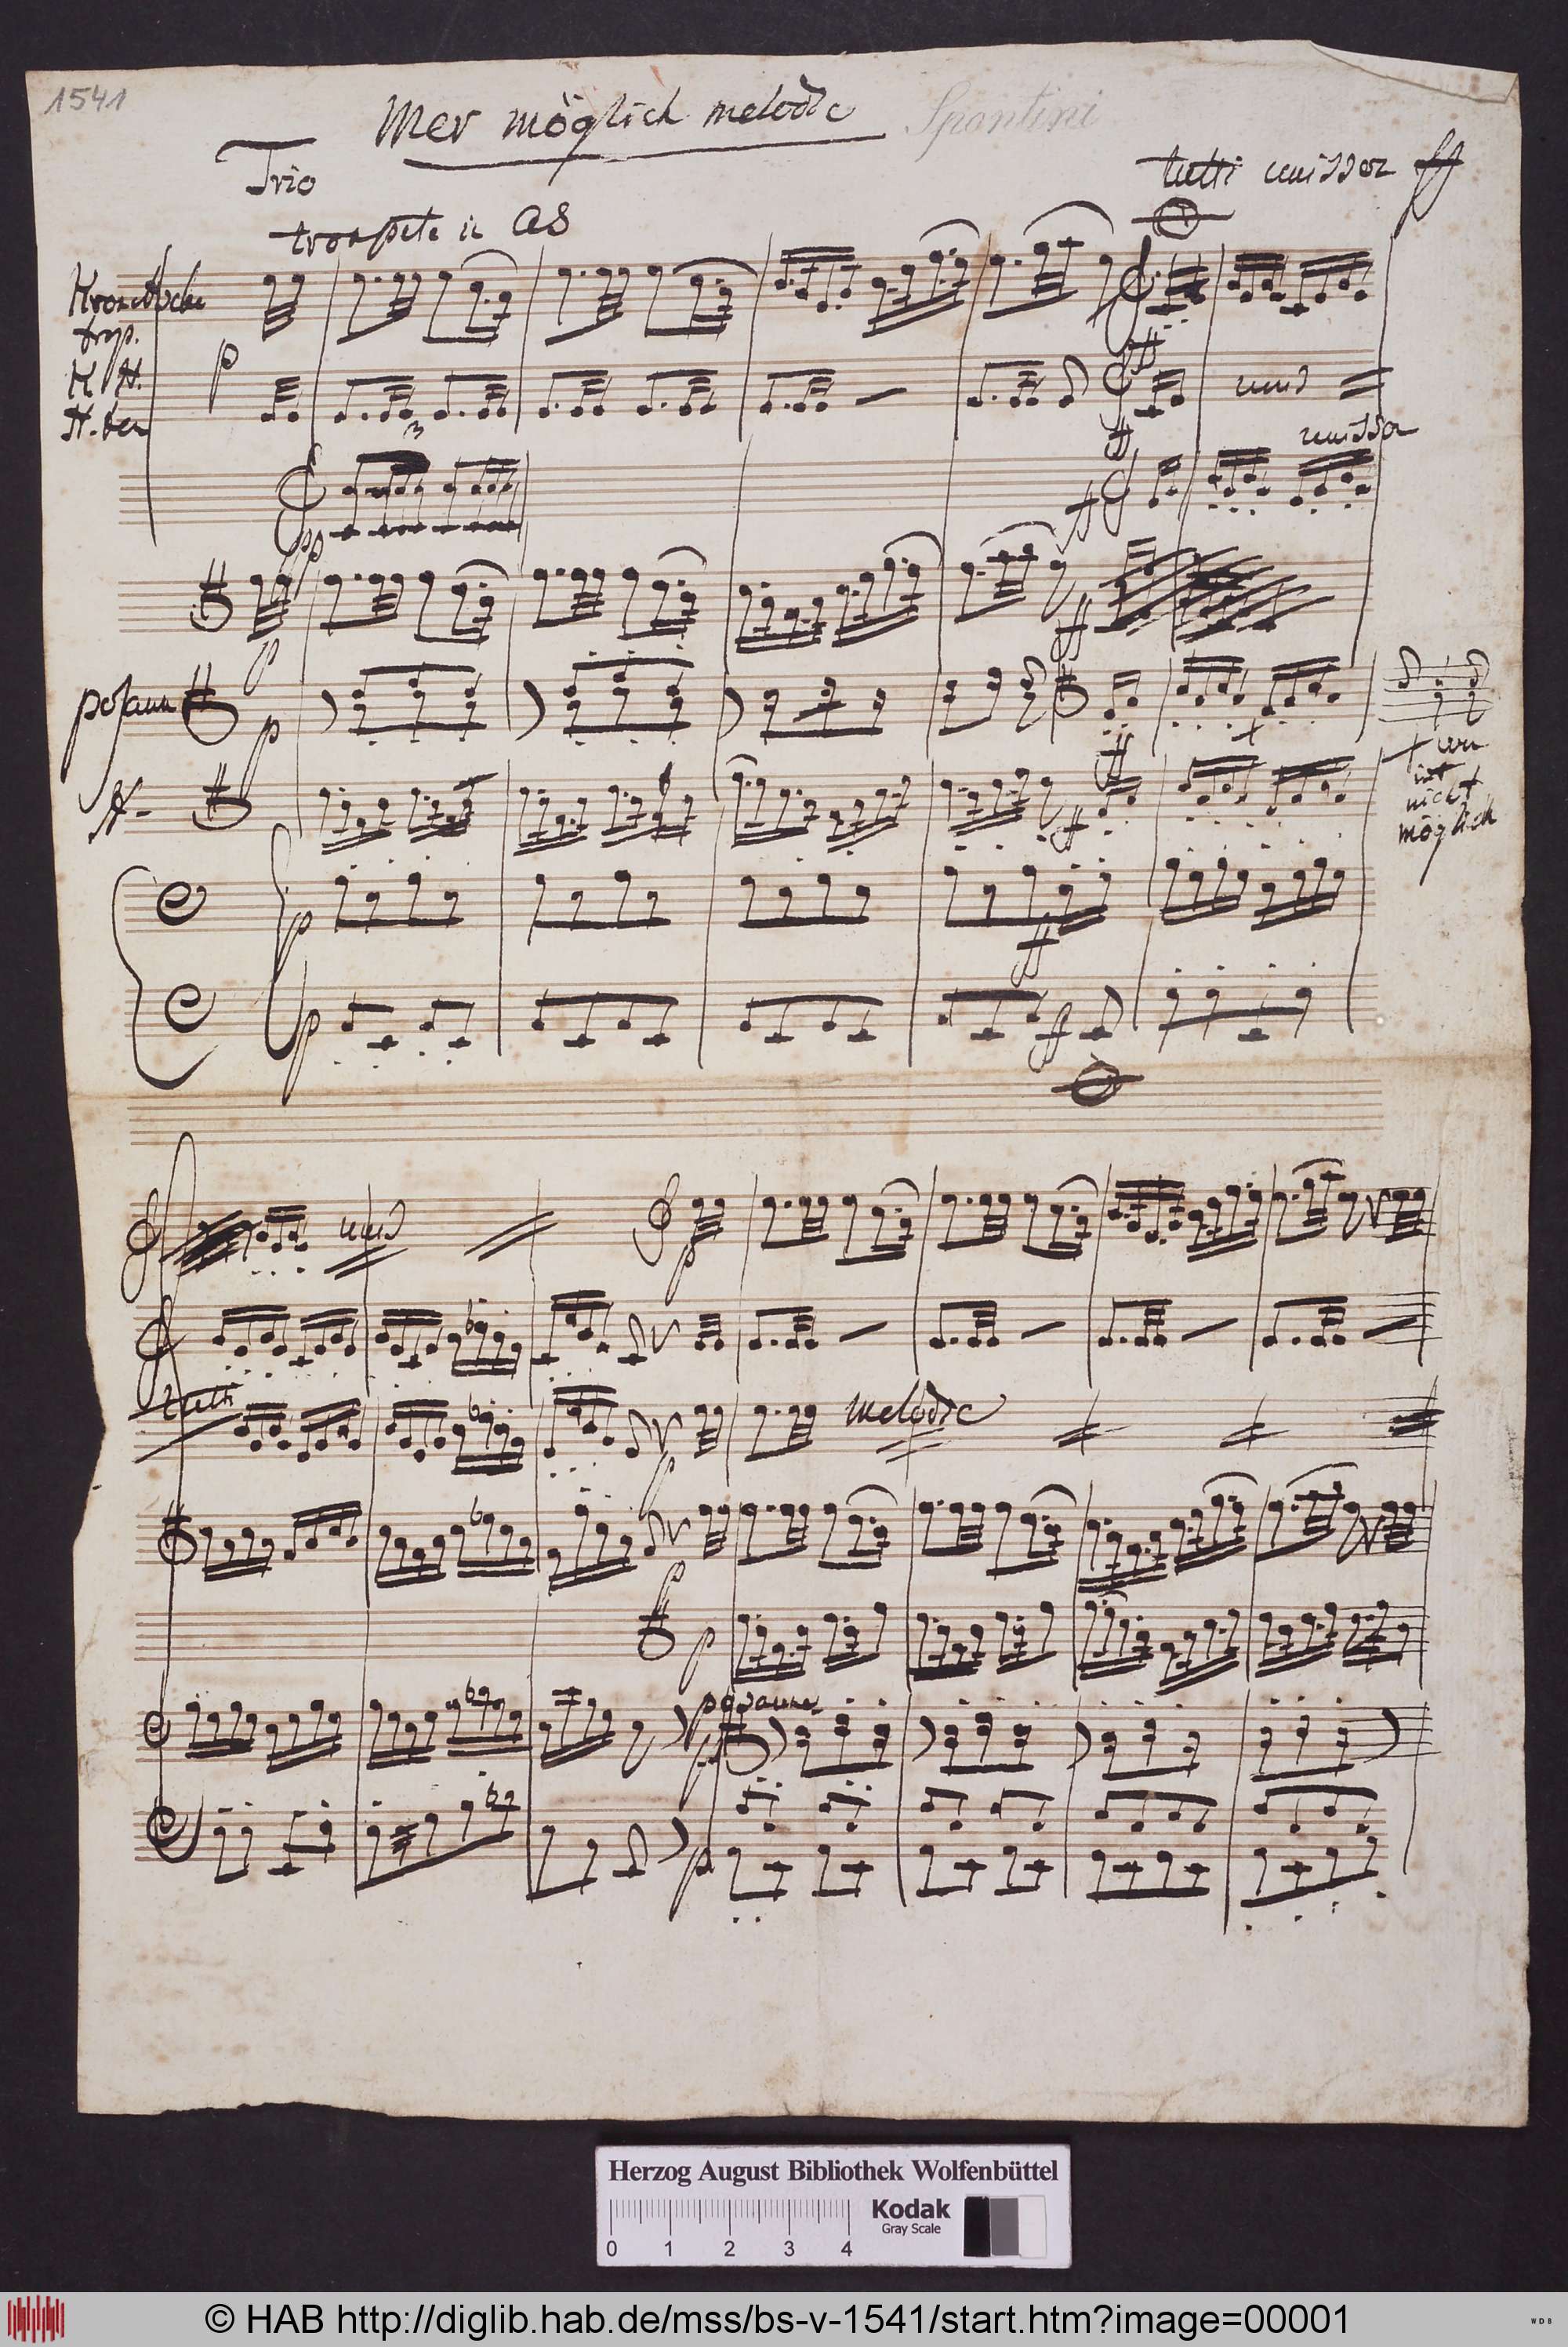 1541
Mer möglich melodie
Spontini
Trio
tutti unisson ff
trompete in as
p
3
unis
unisson
pp
ff
p
ff
posaun
p
ff
+
ist
nicht
möglich
p
ff
p
ff
unis
p
tutti
melodie
p
p
p
posaune
p
Herzog August Bibliothek Wolfenbüttel
Kodak
Gray Scale
0 1 2 3 4
© HAB http://diglib.hab.de/mss/bs-v-1541/start.htm?image=00001
WDB